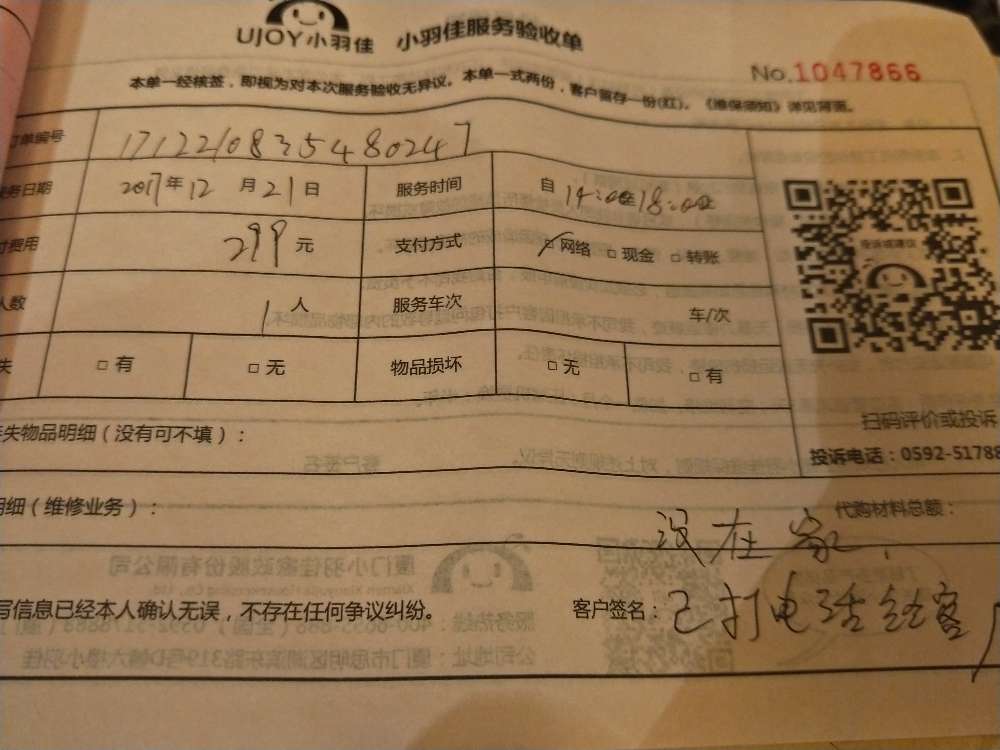 UJOY小羽佳 小羽佳服务验收单
No.1047866
本单一经核签，即视为对本次服务验收无异议。本单一式两份，客户留存一份(红)。《维保须知》详见背面。
订单编号 1712210835480247
服务日期 2017年12月21日 服务时间 自14:00至18:00止
付费用 299元 支付方式 ☑网络 □现金 □转账
人数 1人 服务车次 车/次
失 □有 □无 物品损坏 □无 □有
投诉或建议
扫码评价或投诉
投诉电话：0592-51788
丢失物品明细（没有可不填）：
明细（维修业务）： 代购材料总额：
没在家，
写信息已经本人确认无误，不存在任何争议纠纷。 客户签名：已打电话给客户